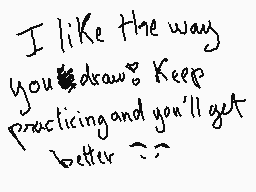 I like the way
you draw! Keep
practicing and you'll get
better